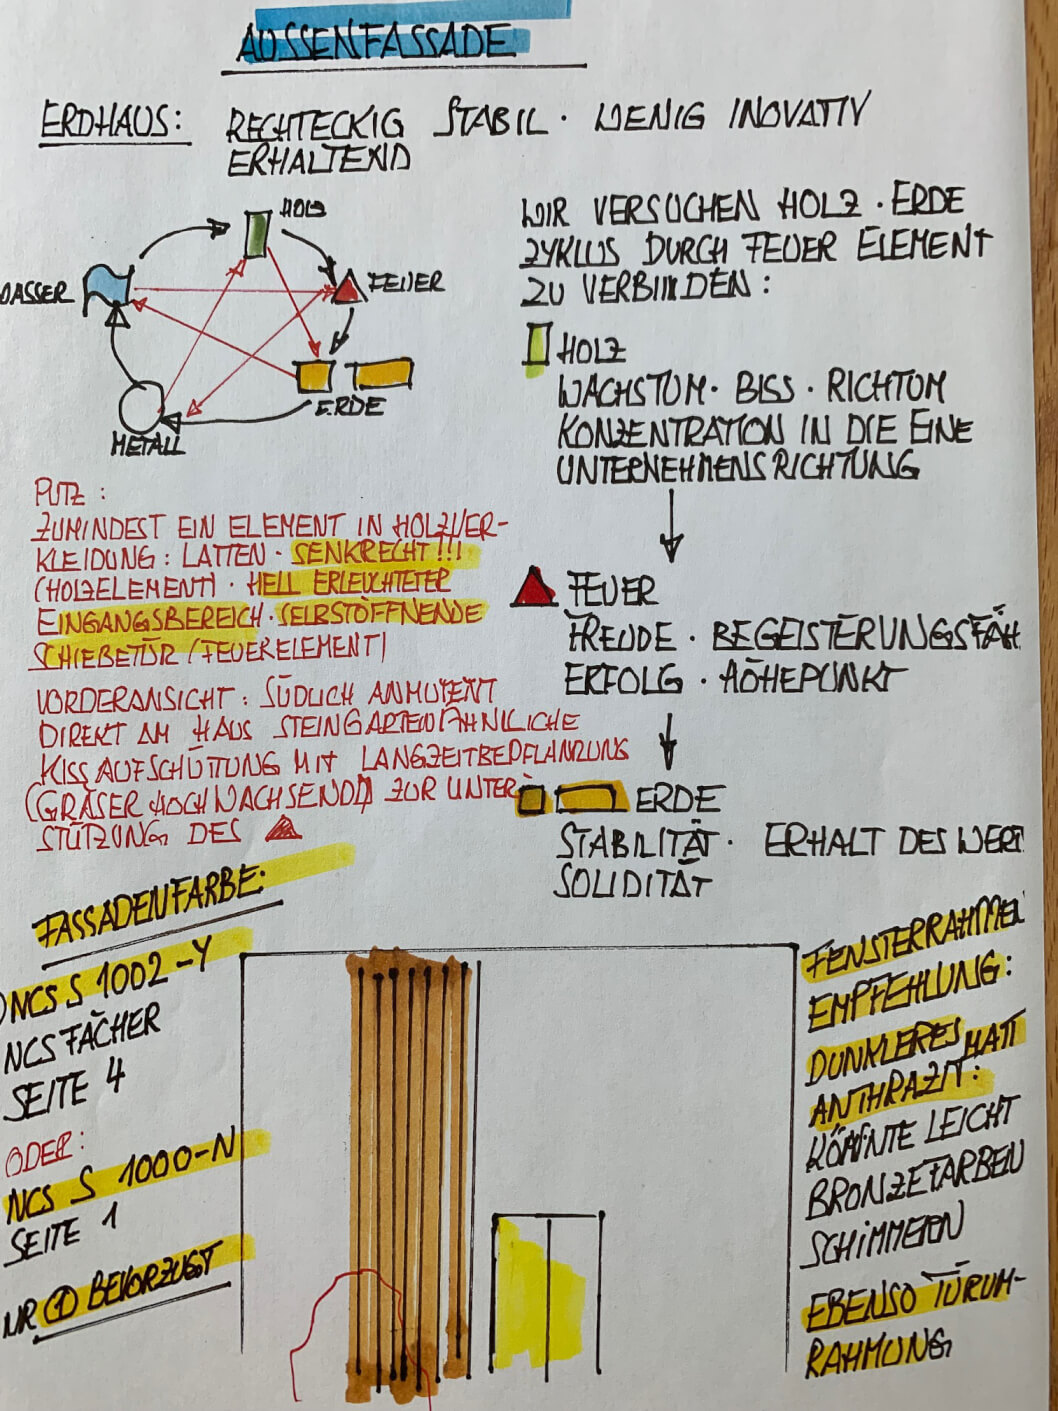 AUSSENFASSADE
ERDHAUS: RECHTECKIG STABIL · WENIG INOVATIV
ERHALTEND
HOLZ
WASSER
FEUER
ERDE
METALL
WIR VERSUCHEN HOLZ · ERDE
ZYKLUS DURCH FEUER ELEMENT
ZU VERBINDEN:
HOLZ
WACHSTUM · BISS · RICHTUM
KONZENTRATION IN DIE EINE
UNTERNEHMENSRICHTUNG
FEUER
FREUDE · BEGEISTERUNGSFÄH
ERFOLG · HÖHEPUNKT
ERDE
STABILITÄT · ERHALT DES WERT
SOLIDITÄT
PUTZ:
ZUMINDEST EIN ELEMENT IN HOLZVER-
KLEIDUNG: LATTEN · SENKRECHT!!!
(HOLZELEMENT) · HELL ERLEUCHTETER
EINGANGSBEREICH · SELBSTÖFFNENDE
SCHIEBETÜR (FEUERELEMENT)
VORDERANSICHT: SÜDLICH ANMUTENT
DIREKT AM HAUS STEINGARTENÄHNLICHE
KISSAUFSCHÜTTUNG MIT LANGZEITBEPFLANZUNG
(GRÄSER HOCHWACHSEND) ZUR UNTER-
STÜTZUNG DES
FASSADENFARBE:
NCS S 1002-Y
NCS FÄCHER
SEITE 4
ODER:
NCS S 1000-N
SEITE 1
NR ① BEVORZUGT
FENSTERRAHMEN
EMPFEHLUNG:
DUNKLERES MATT
ANTHRAZIT:
KÖNNTE LEICHT
BRONZEFARBEN
SCHIMMERN
EBENSO TÜRUM-
RAHMUNG